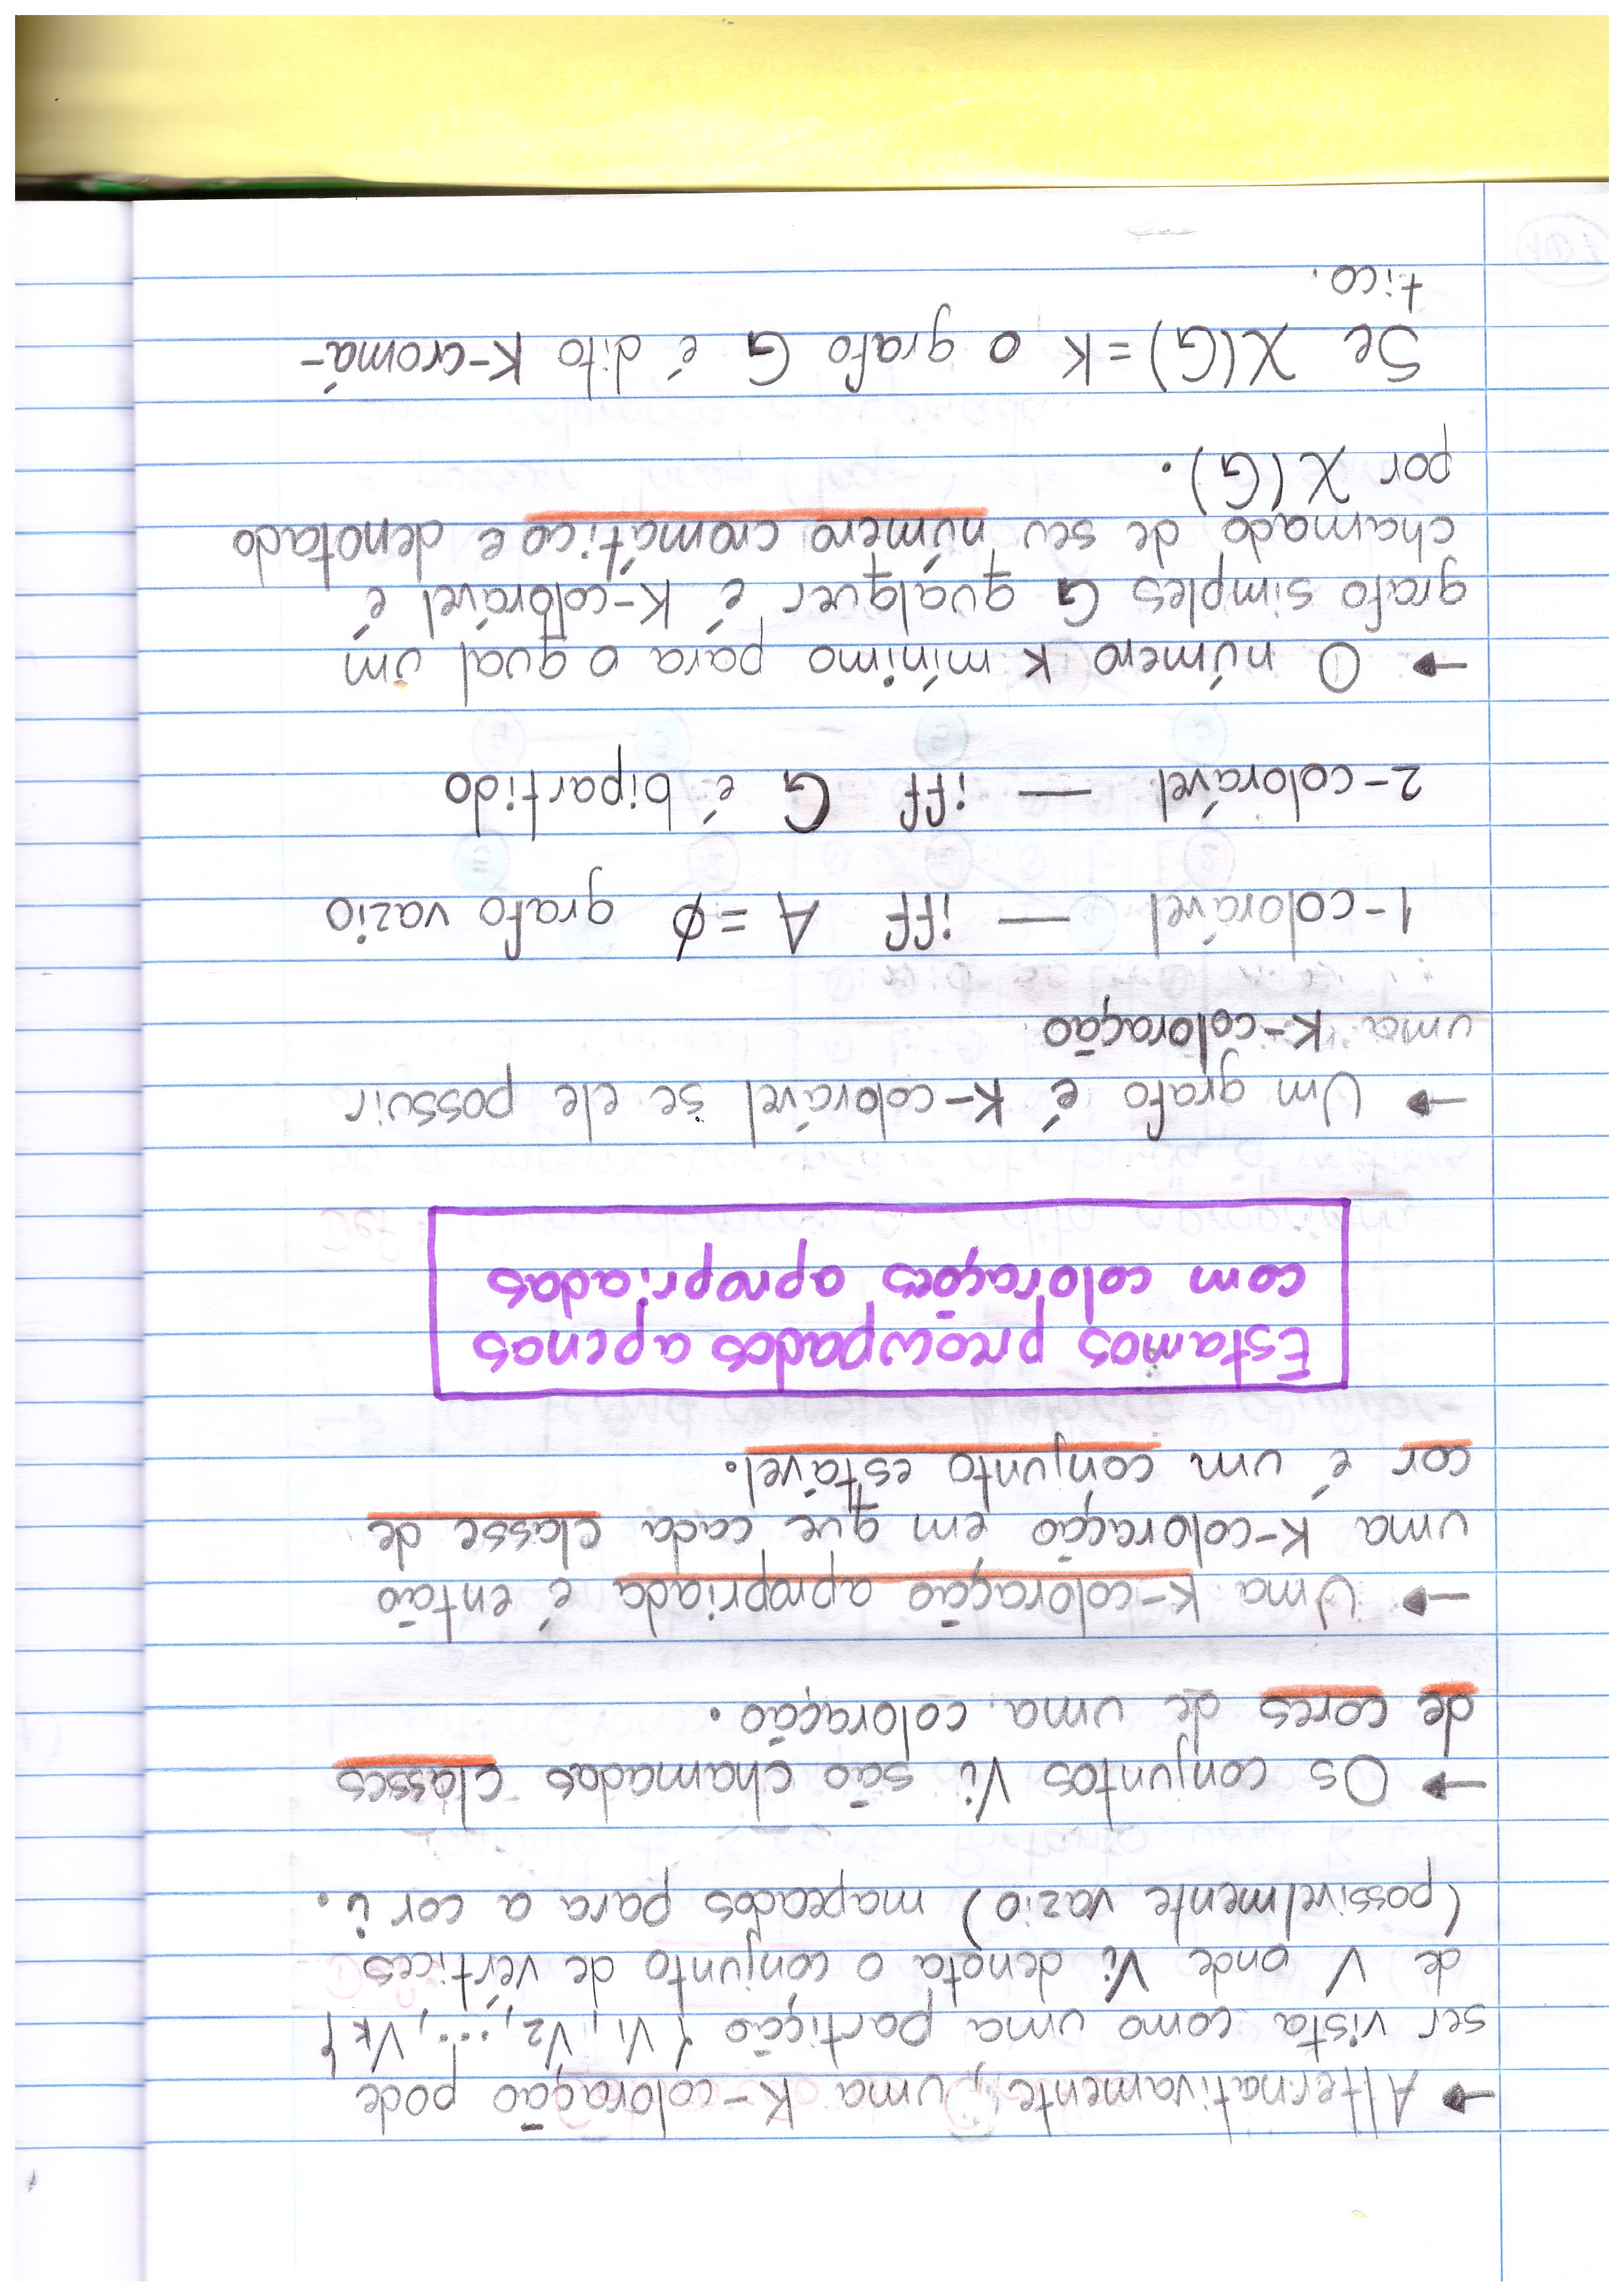 → Alternativamente, uma K-coloração pode
ser vista como uma partição {V1, V2, ..., Vk}
de V onde Vi denota o conjunto de vértices
(possivelmente vazio) mapeados para a cor i.
→ Os conjuntos Vi são chamadas classes
de cores de uma coloração.
→ Uma K-coloração apropriada é então
uma K-coloração em que cada classe de
cor é um conjunto estável.
Estamos preocupados apenas
com colorações apropriadas
→ Um grafo é K-colorável se ele possuir
uma K-coloração
1-colorável — iff A = ∅ grafo vazio
2-colorável — iff G é bipartido
→ O número K mínimo para o qual um
grafo simples G qualquer é K-colorável é
chamado de seu número cromático e denotado
por χ(G).
Se χ(G) = K o grafo G é dito K-cromá-
tico.